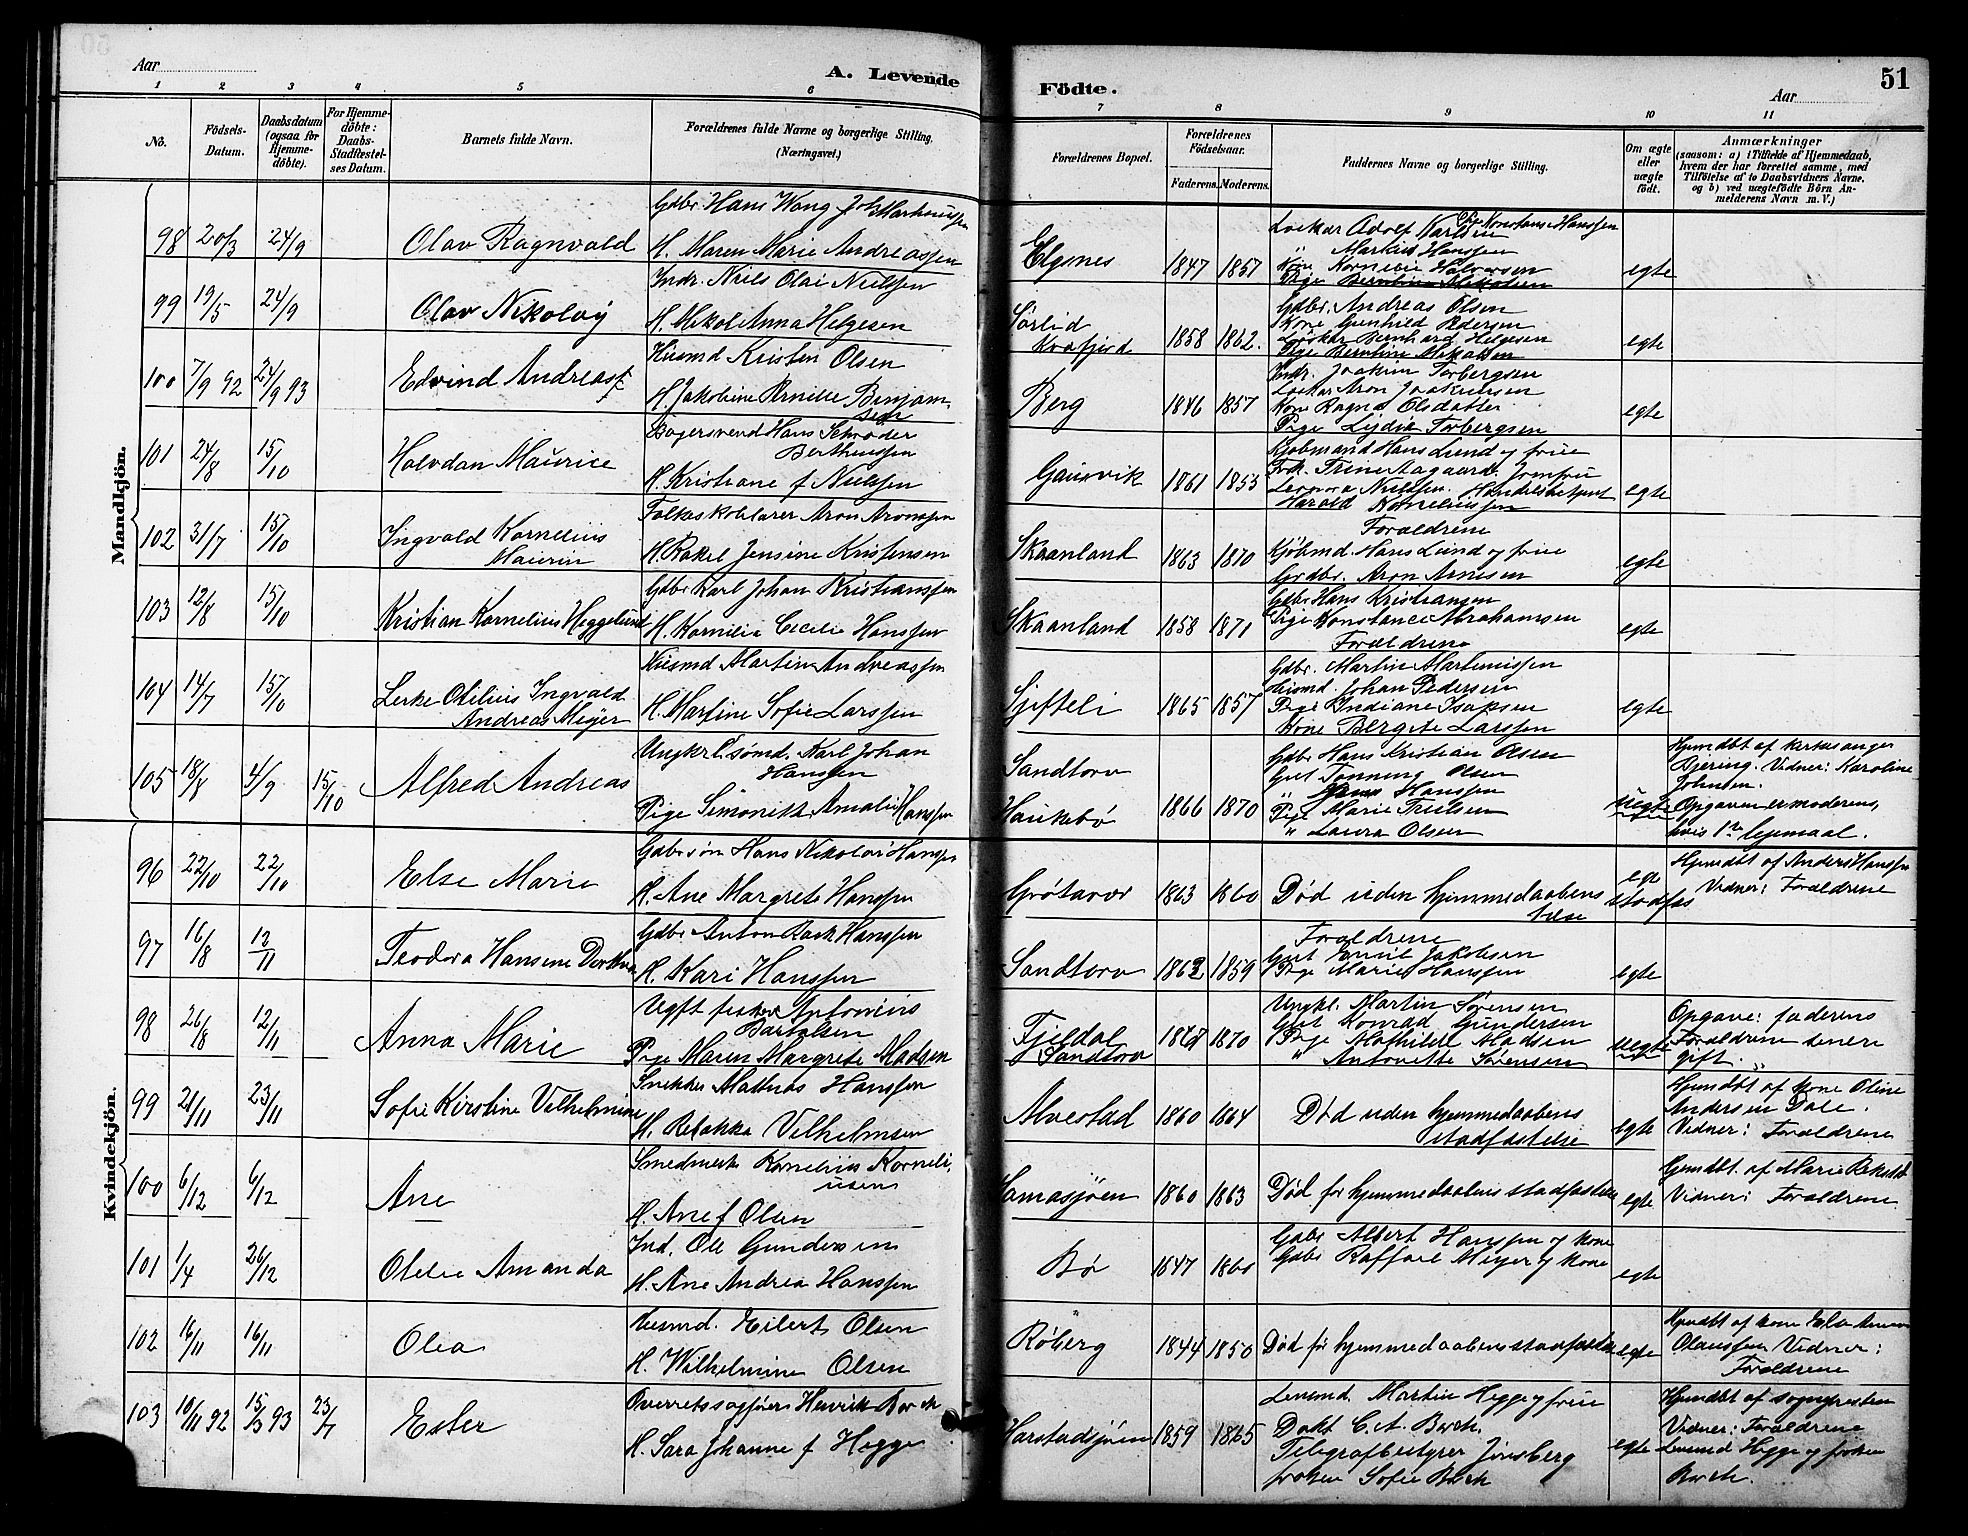 51
Aar
A. Levende
Födte.
Aar
1 2 3 4 5 6 7 8 9 10 11
No.
Födsels-
Datum.
Daabsdatum
(ogsaa for
Hjemme-
döbte).
For Hjemme-
döbte:
Daabs-
Stadfæstel-
ses Datum.
Barnets fulde Navn.
Forældrenes fulde Navne og borgerlige Stilling.
(Næringsvei.)
Forældrenes Bopæl.
Forældrenes
Födselsaar.
Faderens. Moderens.
Faddernes Navne og borgerlige Stilling.
Om ægte
eller
uægte
födt.
Anmærkninger
(saasom: a) i Tilfælde af Hjemmedaab,
hvem der har forrettet samme, med
Tilföielse af to Daabsvidners Navne,
og b) ved uægtefödte Börn An-
melderens Navn m. V.)
Mandkjön.
98 20/3 24/9 Olav Ragnvald
Gdbr. Hans Wang Joh Markussen
H. Maren Marie Andreassen
Elgsnes 1847 1857
Pige Konstanse Hanssen
Markus Hanssen
Kone Halvorsen
egte
99 19/5 24/9 Olav Nikolay
Indr. Niels Olai Nielssen
H. Nikol. Anna Helgesen
Sørlid
Kvæfjord
1858 1862.
Gdbr. Andreas Olsen
Kone Gunhild Pedersen
Bernhard Helgesen
egte
100 7/9 92 24/9 93 Edvind Andreas
Husmd Kristen Olsen
H. Jakobine Pernille Benjam-
sen
Berg 1846 1857
Indr. Joakim Torbergsen
Aron Joakimsen
Kone Ragna Olsdatter
Pige Lydik Torbergsen
egte
101 24/8 15/10 Halvdan Maurice
Bagersvend Hans Schrøder
Berthinssen
H. Kristiane f Nielssen
Gausvik 1861 1853
Kjøbmand Hans Lund og frue
Frk. Trine Aagaard. Jomfru
Leonora Nielssen. Handelsbetjent
Harald Kornelinssen
egte
102 31/7 15/10 Ingvald Kornelius
Haurin
Folkeskolelærer Aron Aronssen
H. Rakel Jensine Kristensen
Skaanland 1863 1870
Forældrene
Kjøbmd. Hans Lund og frue
Grdbr. Aron Arnesen
egte
103 12/8 15/10 Kristian Kornelius Heggelund
Gdbr Karl Johan Kristianssen
H. Kornelia Cecilie Hanssen
Skaanland 1858 1871
Gdbr Hans Kristiansen
Pige Konstance Abrahamsen
Forældrene
egte
104 14/7 15/10 Otelius Ingvald
Andreas Meyer
Husmd Martin Andreassen
H. Martine Sofie Larssen
1865 1857
Gdbr. Martin Martinussen
Husmd. Johan Pedersen
Pige Indiane Isaksen
Kone Bergite Larssen
egte
105 18/8 4/9 15/10 Alfred Andreas
Ungkrl. sømd. Karl Johan
Hanssen
Pige Simonitta Amalie Hanssen
Sandtorv
Haukebø
1866 1870
Gdbr Hans Kristian Olsen
Gut Tønning Olsen
" Hanssen
Pige Marie Truelsen
" Laura Olsen
uegte
Hjemdbt af kirkesanger
Kjering. Vidner: Karoline
Johnsen.
Opgaven er moderens,
hvis 1ste lejemaal.
Kvindekjön.
96 22/10 22/10 Else Marie
Gdbrsøn Hans Nikolai Hanssen
H. Ane Margrete Hanssen
Grøtavær 1863 1860
Død uden hjemmedaabens stadfæs
telse
egte
Hjemdbt af Anders Hanssen
Vidner: Forældrene
97 16/8 12/11 Teodora Hansine Dorthea
Gdbr Anton Rask Hanssen
H. Kari Hanssen
Sandtorv 1862 1859
Forældrene
Gut Emil Jakobsen
Pige Marie Hanssen
egte
98 26/8 12/11 Anna Marie
Ugft fisker Antonius
Bartolsen
Pige Maren Margrete Madsen
Fjeldal
Sandtorv
1867 1870
Ungkl. Martin Sørensen
Gut Konrad Gundersen
Pige Mathilde Madsen
" Antonette Sørensen
uegte
Opgave: faderens
Forældrene senere
gift.
99 21/11 23/11 Sofie Kirstine Vilhelmine
Snekker Mathias Hanssen
H. Rebekka Vilhelmsen
Alvestad 1860 1864
Død uden hjemmedaabens
stadfæstelse
egte
Hjemdbt af kone Oline
Andersen Dale.
Vidner: Forældrene
100 6/12 6/12 Ane
Smedmestr Kornelius Korneli-
usen
H. Ane f Olsen
Samasjøen 1860 1863
Død før hjemmedaabens stadfæstelse
egte
Hjemdbt. af Marie
Vidner: Forældrene
101 1/4 26/12 Otelie Amanda
Ind. Ole Gundersen
H. Ane Andrea Hanssen
Bø 1847 1860
Gdbr Albert Hanssen og kone
Gdbr Raffael Meyer og kone
egte
102 16/11 16/11 Olea
Husmd. Eilert Olsen
H. Wilhelmine Olsen
Røberg 1844 1850
Død før hjemmedaabens stadfæstelse
egte
Hjemdbt af kone
Olaussen Vidner:
Forældrene
103 10/11 92 15/3 93 23/7 Ester
Overretssagfører Henrik Borch
H. Sara Johanne f Hegge
Harstadsjøen 1859 1865
Lensmd Martin Hegge og frue
Dokt C. A. Borch.
Telegrafbestyrer Jünsberg
frøken Sofie Borch
egte
Hjemdbt af sognepresten
Vidner: Forældrene
Lensmd Hegge og frøken
Borch.